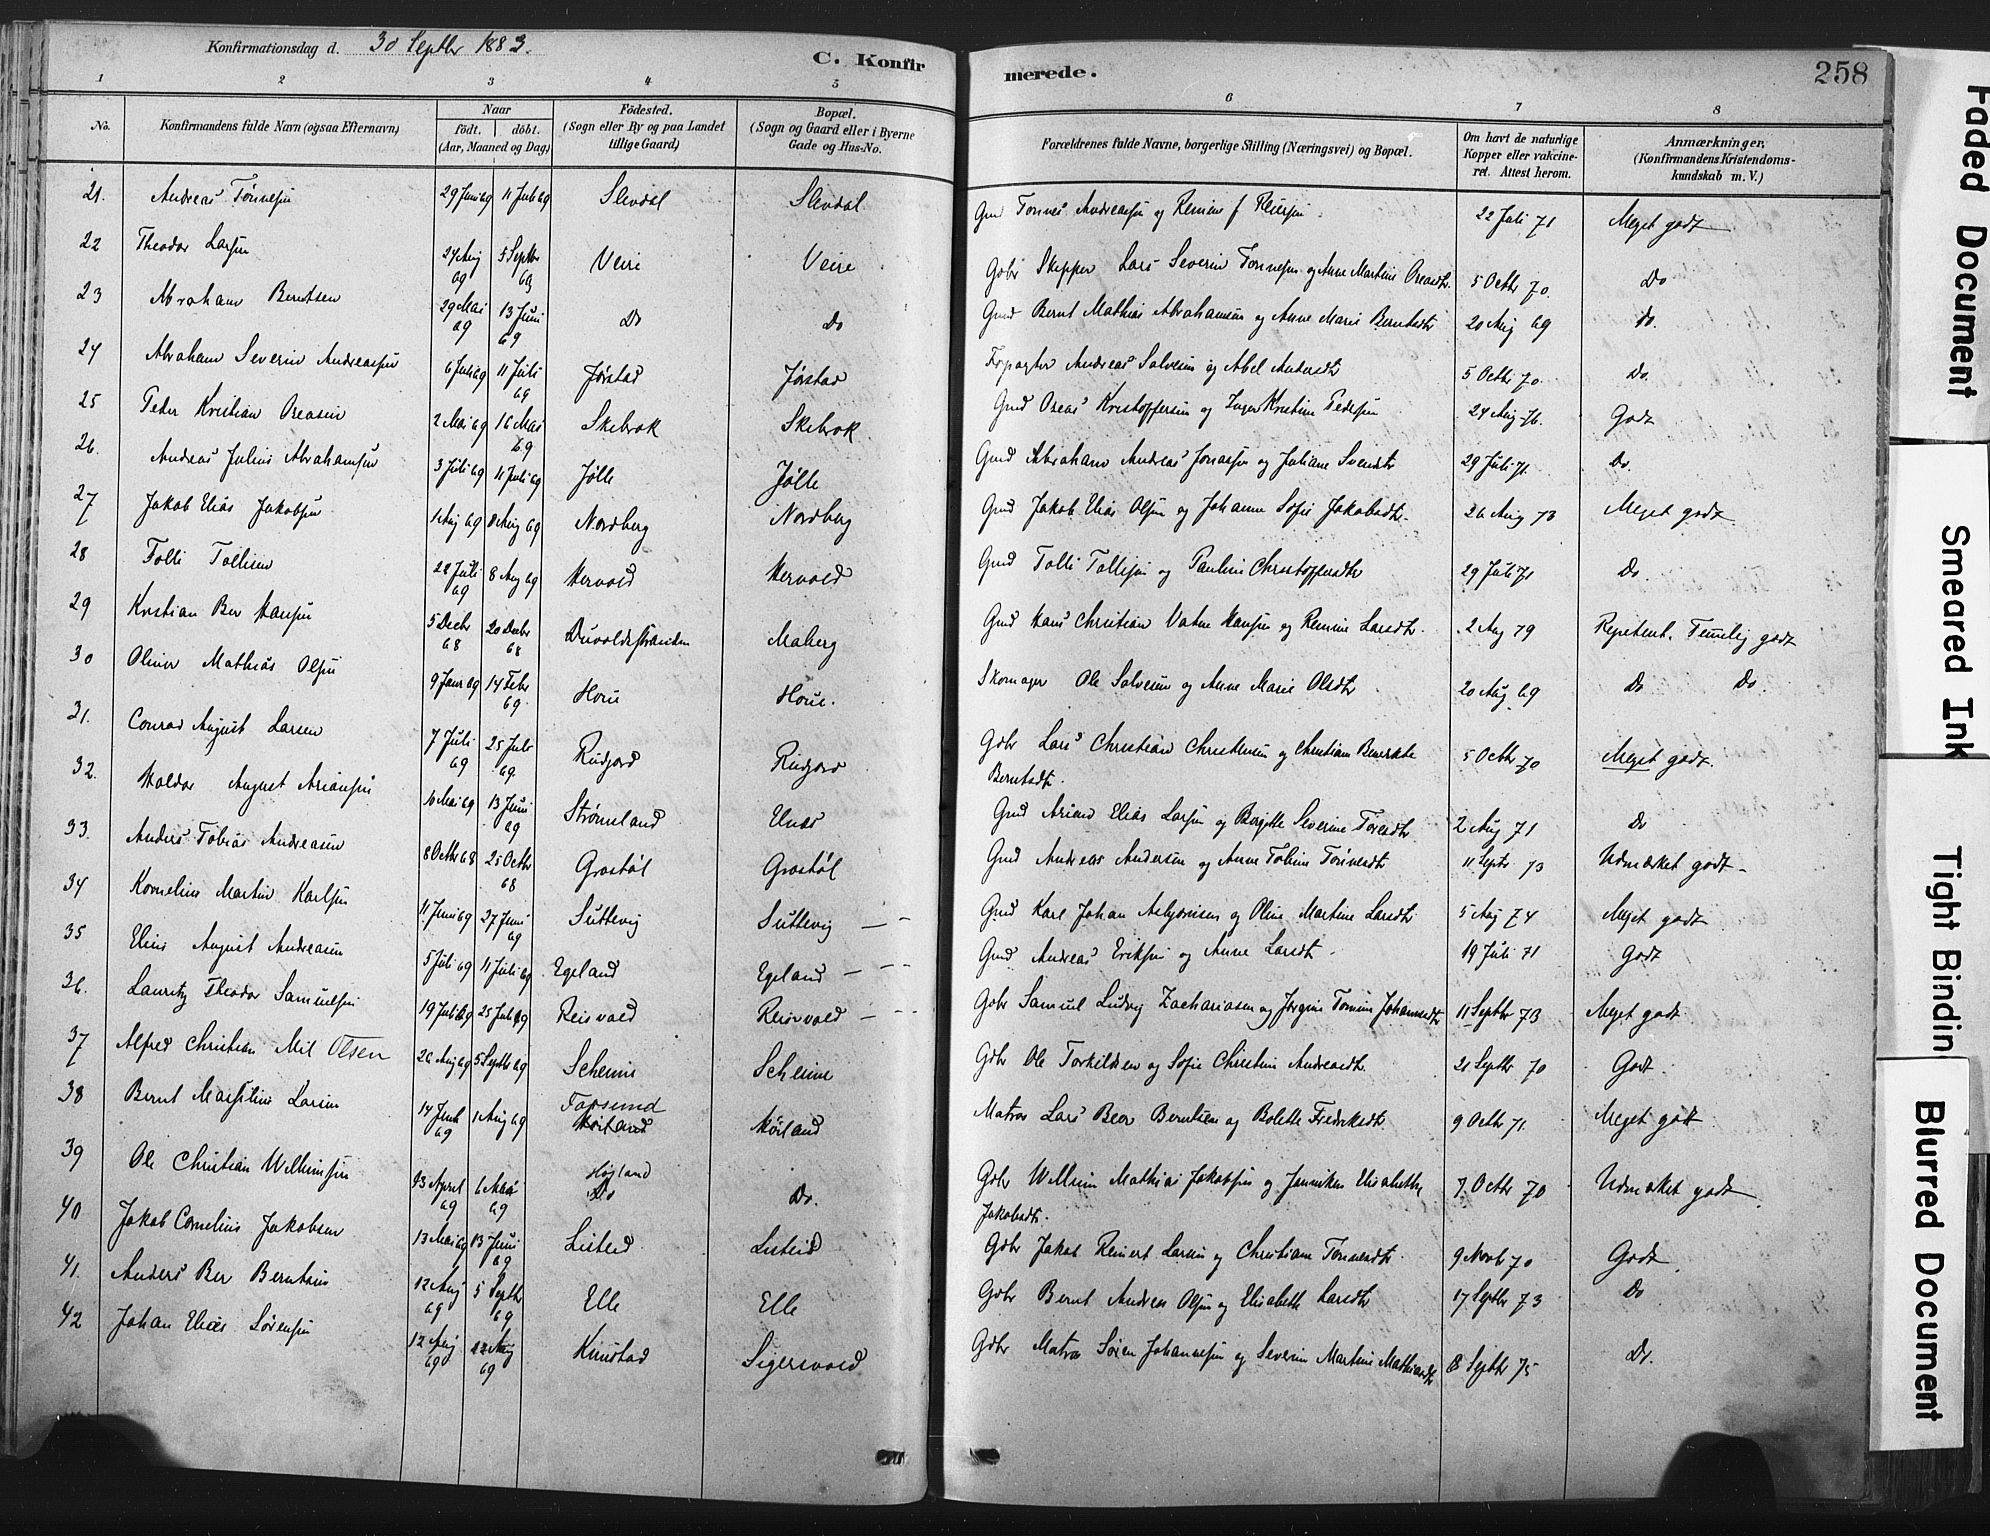 Konfirmationsdag d. 30 Septbr 1883.
C. Konfir
merede.
258
1 2 3 4 5 6 7 8
No. Konfirmandens fulde Navn (ogsaa Efternavn) Naar födt. döbt. (Aar, Maaned og Dag) Födested. (Sogn eller By og paa Landet tillige Gaard) Bopæl. (Sogn og Gaard eller i Byerne Gade og Hus-No. Forældrenes fulde Navne, borgerlige Stilling (Næringsvei) og Bopæl. Om havt de naturlige Kopper eller vakcineret. Attest herom. Anmærkninger, (Konfirmandens Kristendomskundskab m. V.)
21. Andreas Tønnesen 29 Juni 69 11 Juli 69 Slevdal Slevdal Tønnes Andreasen og 22 Juli 71 Meget godt
22 Theodor Larsen 24 Aug 69 5 Septbr 69 Veire Veire Gdbr Skipper Lars Severin Tønnesen og Anne Martine Oreasdtr. 5 Octbr 70. Do
23 Abraham Berntsen 29 Mai 69 13 Juni 69 Do Do Gmd Bernt Mathias Abrahamsen og Anne Marie Berntsdtr 20 Aug 69 Do.
24 Abraham Severin Andreassen 6 Juli 69 11 Juli 69 Jørstad Jørstad Andreas Salvesen og Abel Andersdtr 5 Octbr 70. Do.
25 Peder Kristian Oreasen 2 Mai 69 16 Mai 69 Skebrok Skebrok Gmd Oreas Kristoffersen og Inger Kristine Pedersen 24 Aug 76. Godt
26. Andreas Julius Abrahamsen 3 Juli 69 11 Juli 69 Jølle Jølle Gmd Abraham Andreas Jonassen og Juliane Svendsdtr 29 Juli 71. Do.
27 Jakob Elias Jakobsen 1 Aug 69 8 Aug 69 Nordberg Nordberg Gmd Jakob Elias Olsen og Johanne Sofie Jakobsdtr. 26 Aug 73 Meget godt
28 Tolli Tollisen 22 Juli 69 8 Aug 69 Hervold Hervold Gmd Tolli Tollisen og Pauline Christoffersdtr 29 Juli 71 Do.
29 Kristian Ber Hansen 5 Decbr 68 20 Decbr 68 Maberg Gmd Hans Christian Vatne Hansen og Remine Larsdtr. 2 Aug 79 Repetent. Temelig godt
30 Oliver Mathias Olsen 9 Janr 69 14 Febr 69. Houe Houe. Skomager Ole Salvesen og Anne Marie Olsdtr 20 Aug 69 Do Do.
31. Conrad August Larsen 7 Juli 69 25 Juli 69. Rudjord Rudjord Gdbr Lars Christian Christensen og Christiane Benedikte Berntsdtr. 5 Octbr 70 Meget godt.
32. Haldor August Ariansen 16 Mai 69 13 Juni 69 Strømland Unas Gmd Arian Elias Larsen og Bergitte Severine Toresdtr 2 Aug 71 Do
33. Anders Tobias Andreasen 8 Octbr 68 25 Octbr 68 Grostøl Grostøl Gmd Andreas Andersen og Anne Tobine Tønnesdtr 11 Septr 73 Udmærket godt.
34 Kornelius Martin Karlsen 11 Juni 69 27 Juni 69 Suttevig Suttevig Gmd Karl Johan Asbjørnsen og Oline Martine Larsdtr 5 Aug 74 Meget godt
35 Elias August Andreasen 5 Juli 69 11 Juli 69 Egeland Egeland Gmd Andreas Eriksen og Anne Larsdtr. 19 Juli 71 Godt
36. Lauritz Theodor Samuelsen 19 Juli 69 25 Juli 69 Reisvold Reisvold Gdbr Samuel Ludvig Zachariasen og Jørgine Tomine Johannesdtr 11 Septbr 73 Meget godt
37 Alfred Christian Mil Olsen 26 Aug 69 5 Septbr 69 Scheime Scheime Gdbr Ole Torkildsen og Sofie Christine Andreasdtr. 21 Septbr 70 Godt.
38 Bernt Larsen 14 69 1 Aug 69 Farsund Hørland Hørland Matros Lars Beer Berntsen og Bolette Fredriksdtr. 9 Octbr 71. Meget godt
39 Ole Christian Welhimsen 23 April 69 6 Mai 69 Højland Do Do. Gdbr Welhim Mathias Jakobsen og Janniken Elisabeth Jakobsdtr. 7 Octbr 70 Udmærket godt
40 Jakob Cornelius Jakobsen 13 Mai 69 13 Juni 69 Listeid Listeid Gdbr Jakob Reinert Larsen og Christiane Tønnesdtr. 9 Novbr 70 Godt
41. Anders Ber Berntsen 12 Aug 69 5 Septbr 69 Elle Elle Gdbr Bernt Andreas Olsen og Elisabeth Larsdtr 17 Septbr 73 Do
42 Johan Elias Sørensen 12 Aug 69 22 Aug 69 Knustad Sigersvold Gdbr Matros Søren Johannesen og Severine Martine Mathiasdtr 8 Septbr 75 Do.
Faded Document
Smeared Ink
Tight Bindin
Blurred Document